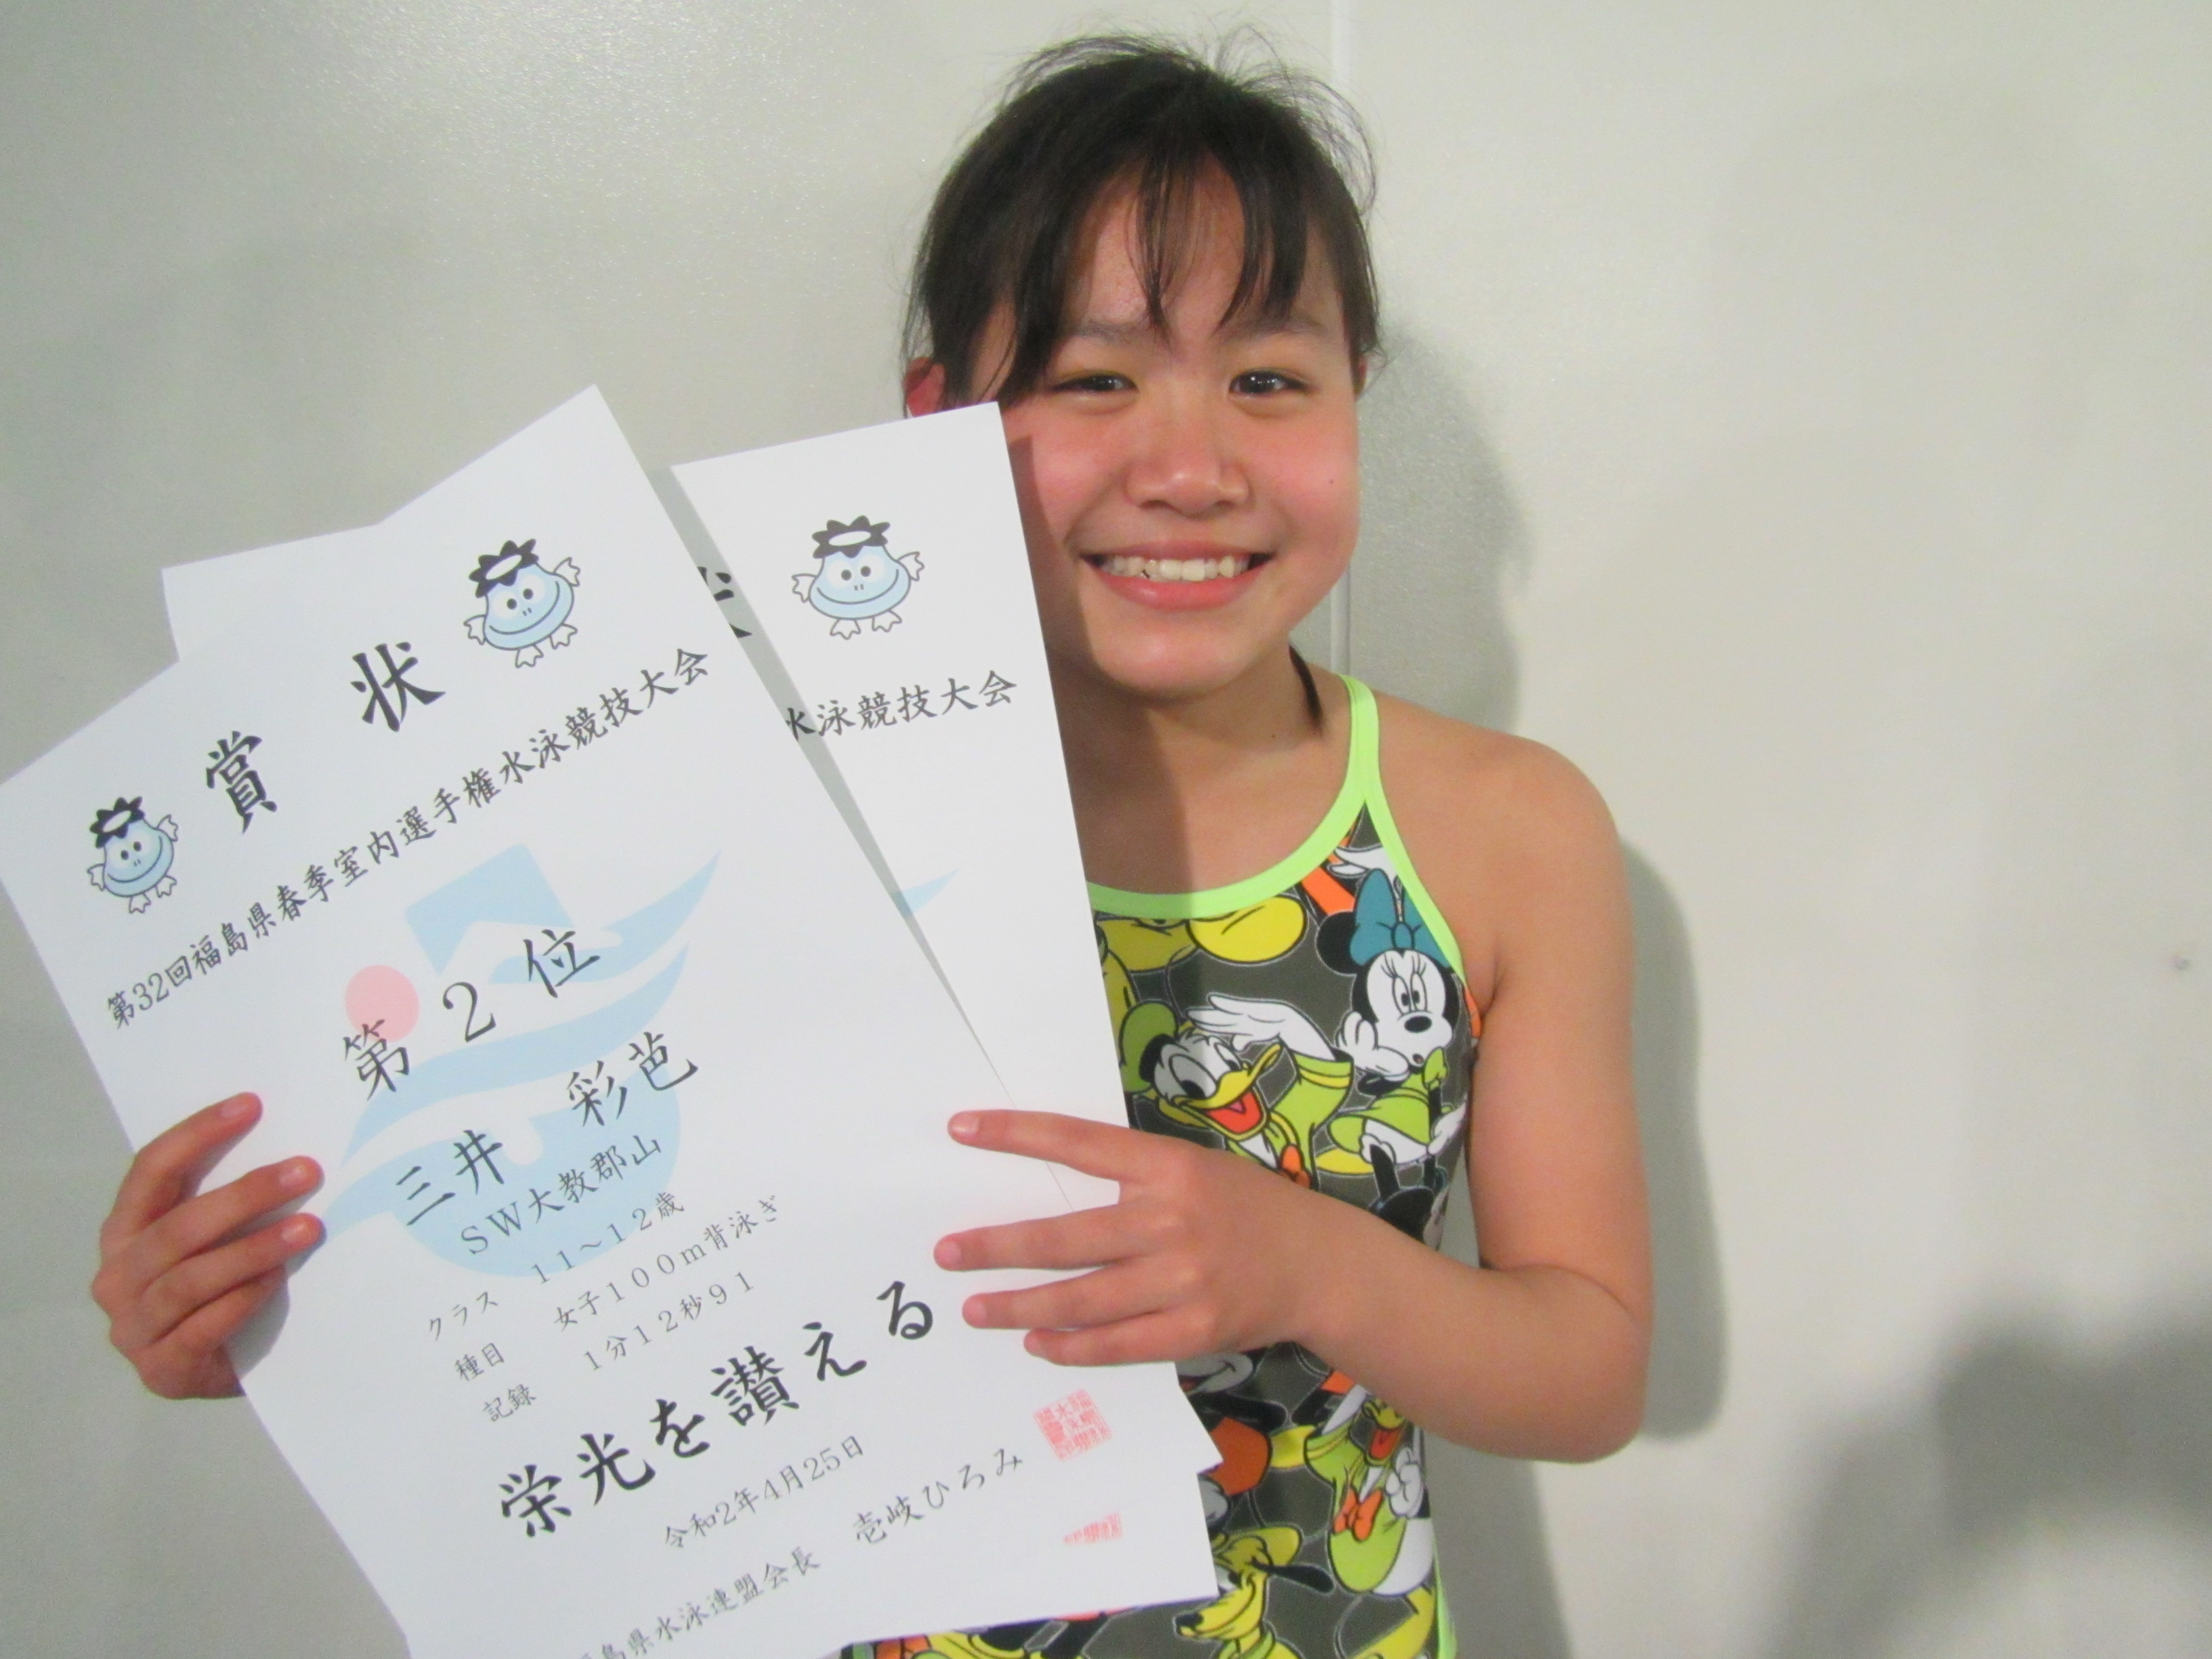 賞 状
第32回福島県春季室内選手権水泳競技大会
第 2 位
三井 彩芭
SW大教郡山
クラス 11～12歳
種目 女子100m背泳ぎ
記録 1分12秒91
栄光を讃える
令和2年4月25日
島県水泳連盟会長 壱岐ひろみ
水泳競技大会